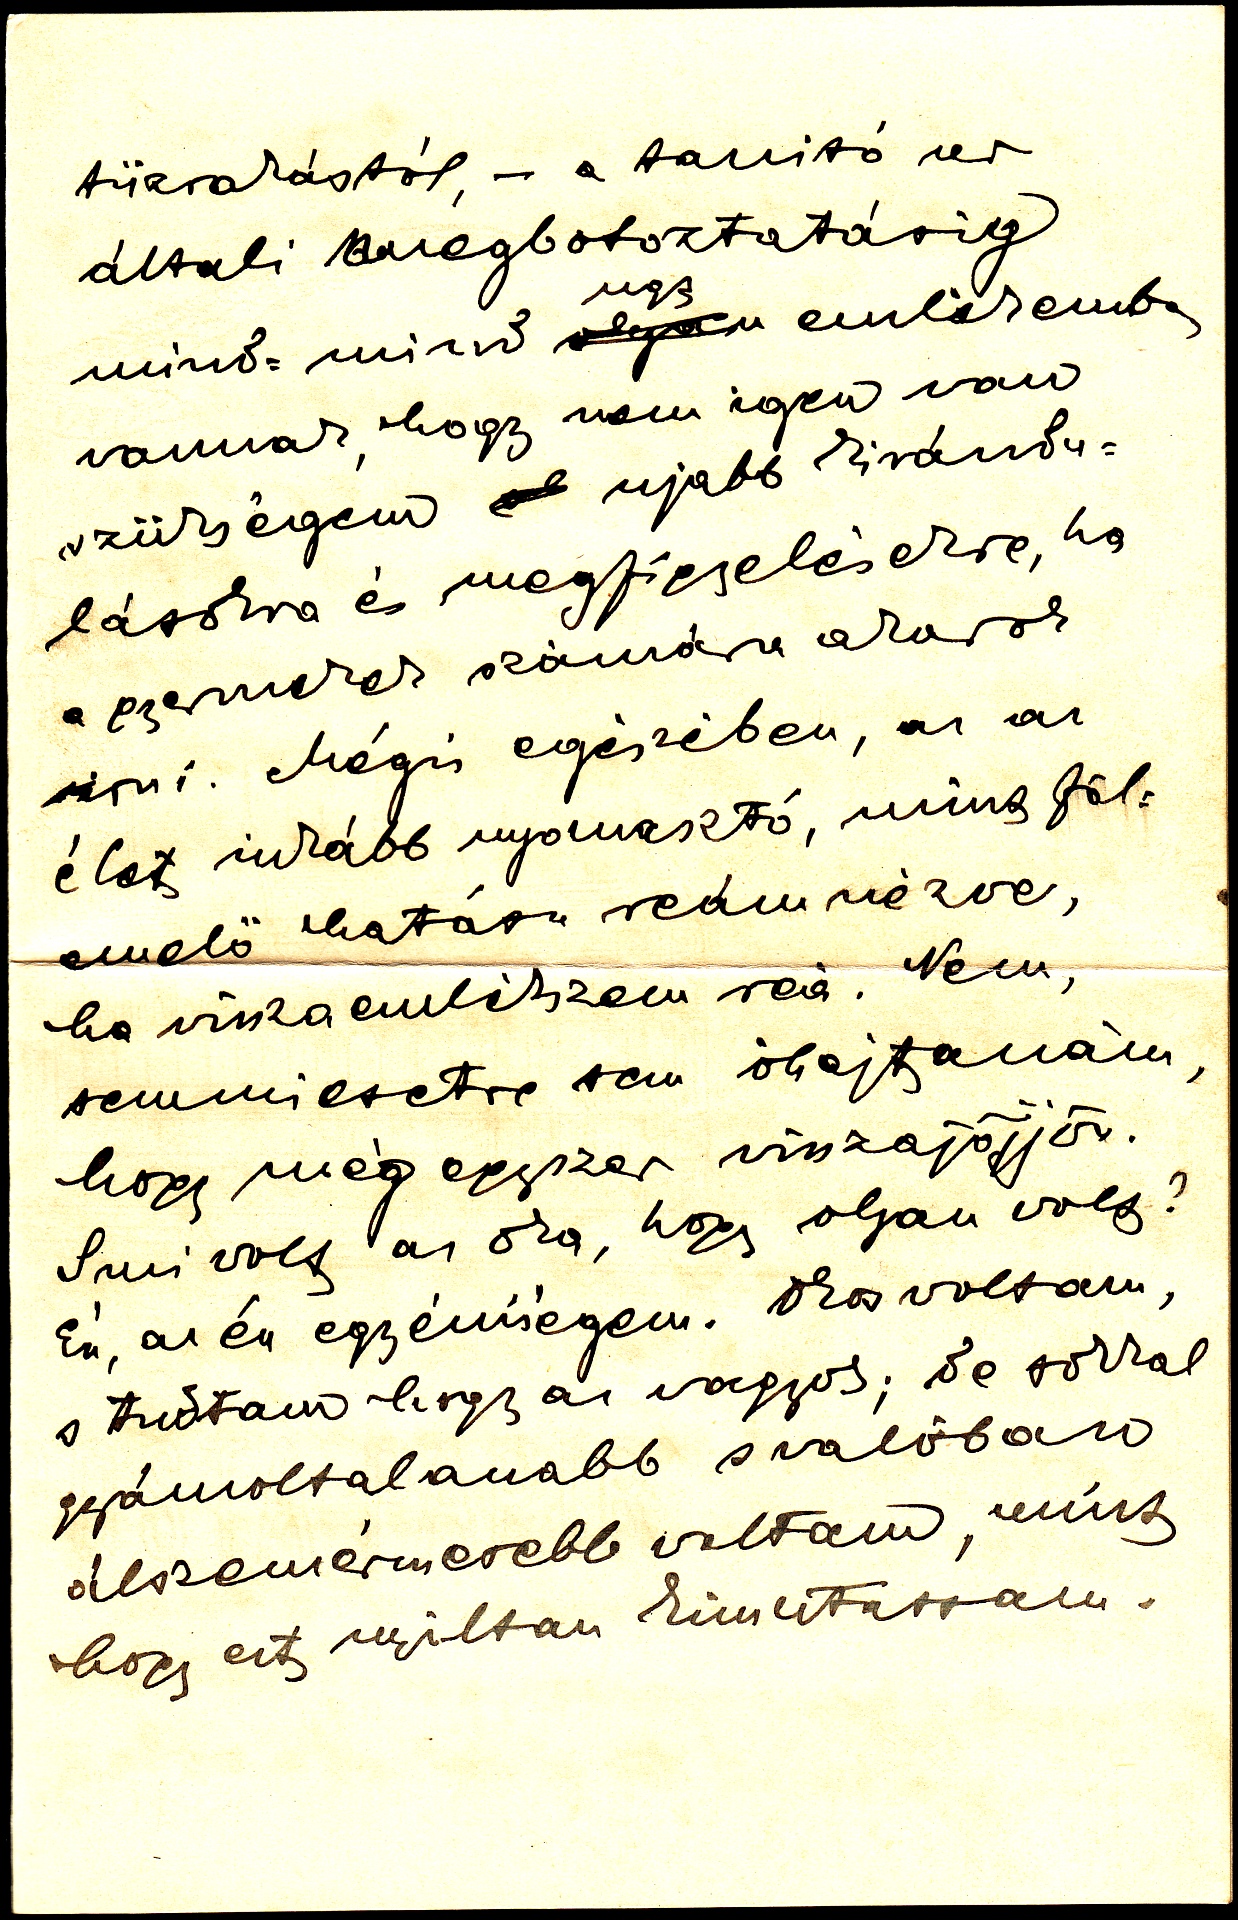 tüzrakástól, – a tanító ur
általi megbotoztatásig
mind-mind ugy emlékemben
vannak, hogy nem igen van
szükségem ujabb kirándu-
lásokra és megfigyelésekre, ha
a gyermekek számára akarok
irni. Mégis egészében, az az
élet inkább nyomasztó, mint föl-
emelő hatásu reám nézve,
ha visszaemlékszem reá. Nem,
semmiesetre sem óhajtanám,
hogy még egyszer visszajöjjön.
S mi volt az oka, hogy olyan volt?
Én, az én egyéniségem. Okos voltam,
s tudtam hogy az vagyok; de sokkal
gyámoltalanabb s valóban
álszemérmesebb voltam, mint
hogy ezt nyiltan kimutassam.